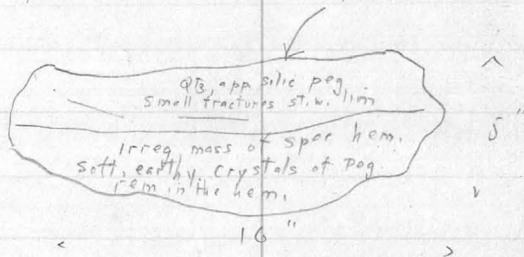 QTZ, app silic peg
Small fractures st. w. lim
Irreg mass of spec hem.
Soft, earthy. Crystals of peg.
rem. in the hem.
5"
16"